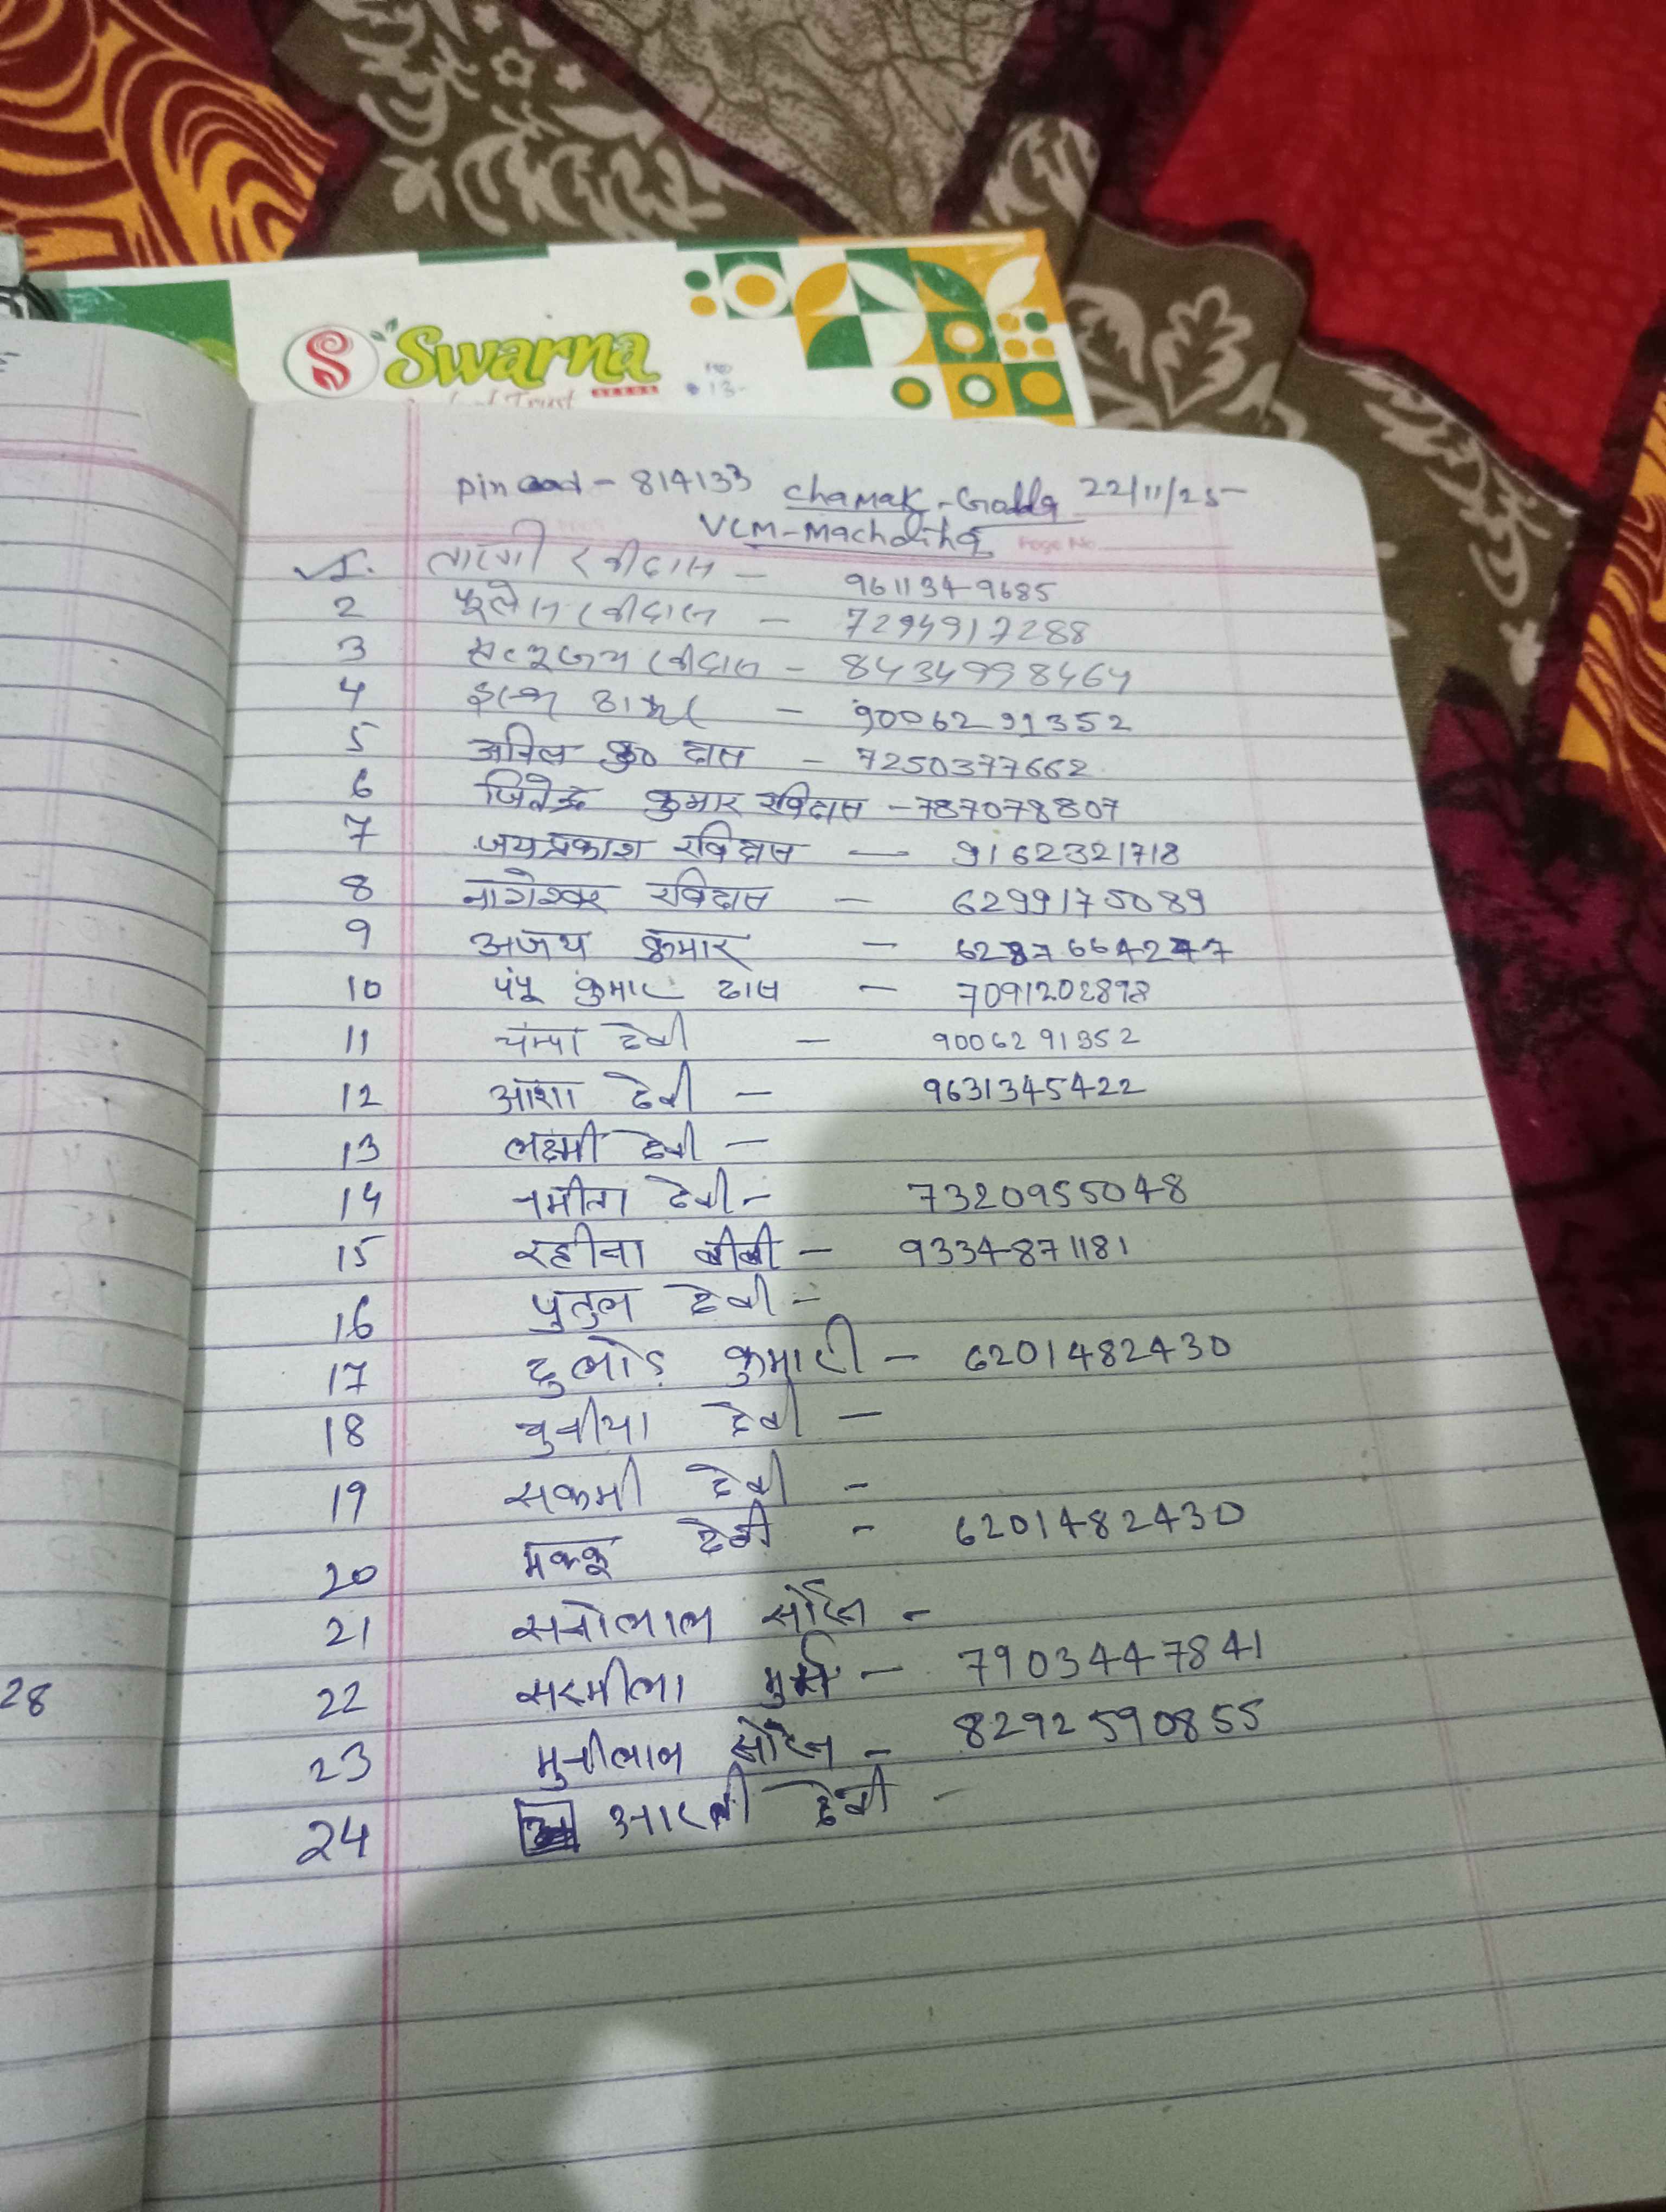 Swarna
SEEDS
of Trust
pin cod - 814133 Chamak - Godda 22/11/25
VCM - Machdiha
Page No.
1. रवीदास - 9611349685
2 रवीदास - 7294917288
3 रवीदास - 8434998464
4 ठाकुर - 9006291352
5 अनिल कु० दास - 7250377662
6 जितेन्द्र कुमार रविदास - 787078807
7 जयप्रकाश रविदास - 9162321718
8 नागेश्वर रविदास - 6299175089
9 अजय कुमार - 6287664247
10 पंपू कुमार दास - 7091202898
11 चम्पा देवी - 9006291352
12 आशा देवी - 9631345422
13 लक्ष्मी देवी -
14 नमीता देवी - 7320955048
15 रहीना बीबी - 9334871181
16 पुतुल देवी -
17 कुमारी - 6201482430
18 चुनीया देवी -
19 सकमी देवी -
20 देवी - 6201482430
21 सोरेन -
22 सरमीला मुर्मू - 7903447841
23 मुनीलाल सोरेन - 8292590855
24 आरती देवी -
28